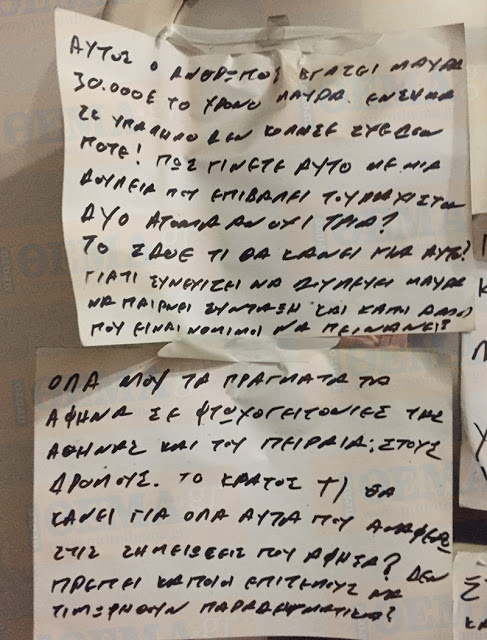 ΑΥΤΟΣ Ο ΑΝΘΡΩΠΟΣ ΒΓΑΖΕΙ ΜΑΥΡΑ
30.000€ ΤΟ ΧΡΟΝΟ ΜΑΥΡΑ. ΕΝΣΗΜΑ
ΣΕ ΥΠΑΛΗΛΟ ΔΕΝ ΚΟΛΗΣΕ ΣΧΕΔΟΝ
ΠΟΤΕ! ΠΩΣ ΓΙΝΕΤΕ ΑΥΤΟ ΜΕ ΜΙΑ
ΔΟΥΛΕΙΑ ΠΟΥ ΕΠΙΒΑΛΕΙ ΤΟΥΛΑΧΙΣΤΟΝ
ΔΥΟ ΑΤΟΜΑ ΑΝ ΟΧΙ ΤΡΙΑ?
ΤΟ ΣΔΟΕ ΤΙ ΘΑ ΚΑΝΕΙ ΓΙΑ ΑΥΤΟ?
ΓΙΑΤΙ ΣΥΝΕΧΙΖΕΙ ΝΑ ΔΟΥΛΕΥΕΙ ΜΑΥΡΑ
ΝΑ ΠΑΙΡΝΕΙ ΣΥΝΤΑΞΗ ΚΑΙ ΚΑΠΟΙ ΑΛΛΟΙ
ΠΟΥ ΕΙΝΑΙ ΝΟΜΙΜΟΙ ΝΑ ΠΕΙΝΑΝΕ?
ΟΛΑ ΜΟΥ ΤΑ ΠΡΑΓΜΑΤΑ ΤΑ
ΑΦΗΝΑ ΣΕ ΦΤΩΧΟΓΕΙΤΟΝΙΕΣ ΤΗΣ
ΑΘΗΝΑΣ ΚΑΙ ΤΟΥ ΠΕΙΡΑΙΑ, ΣΤΟΥΣ
ΔΡΟΜΟΥΣ. ΤΟ ΚΡΑΤΟΣ ΤΙ ΘΑ
ΚΑΝΕΙ ΓΙΑ ΟΛΑ ΑΥΤΑ ΠΟΥ ΑΝΑΦΕΡΩ
ΣΤΙΣ ΣΗΜΕΙΩΣΕΙΣ ΠΟΥ ΑΦΗΣΑ? ΔΕΝ
ΠΡΕΠΕΙ ΚΑΠΟΙΟΙ ΕΠΙΤΕΛΟΥΣ ΝΑ
ΤΙΜΩΡΗΘΟΥΝ ΠΑΡΑΔΕΙΓΜΑΤΙΚΑ?